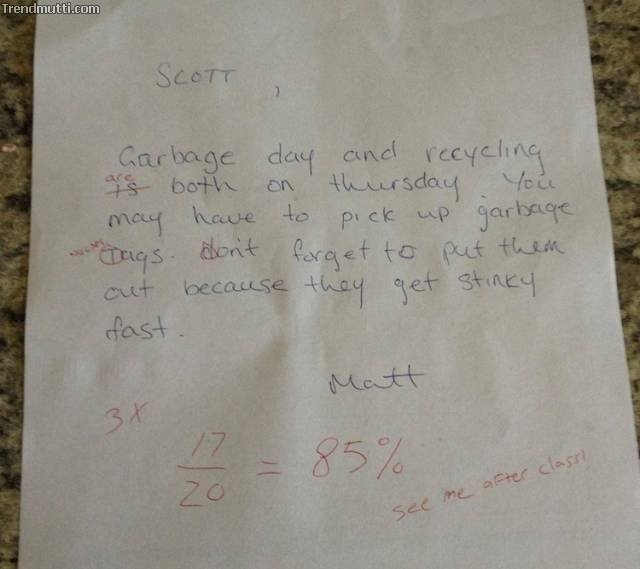 Trendmutti.com
SCOTT,
Garbage day and recycling
are
is both on thursday. You
may have to pick up garbage
Tags. dont forget to put them
out because they get stinky
fast.
Matt
3X
17
20
= 85%
see me after class!